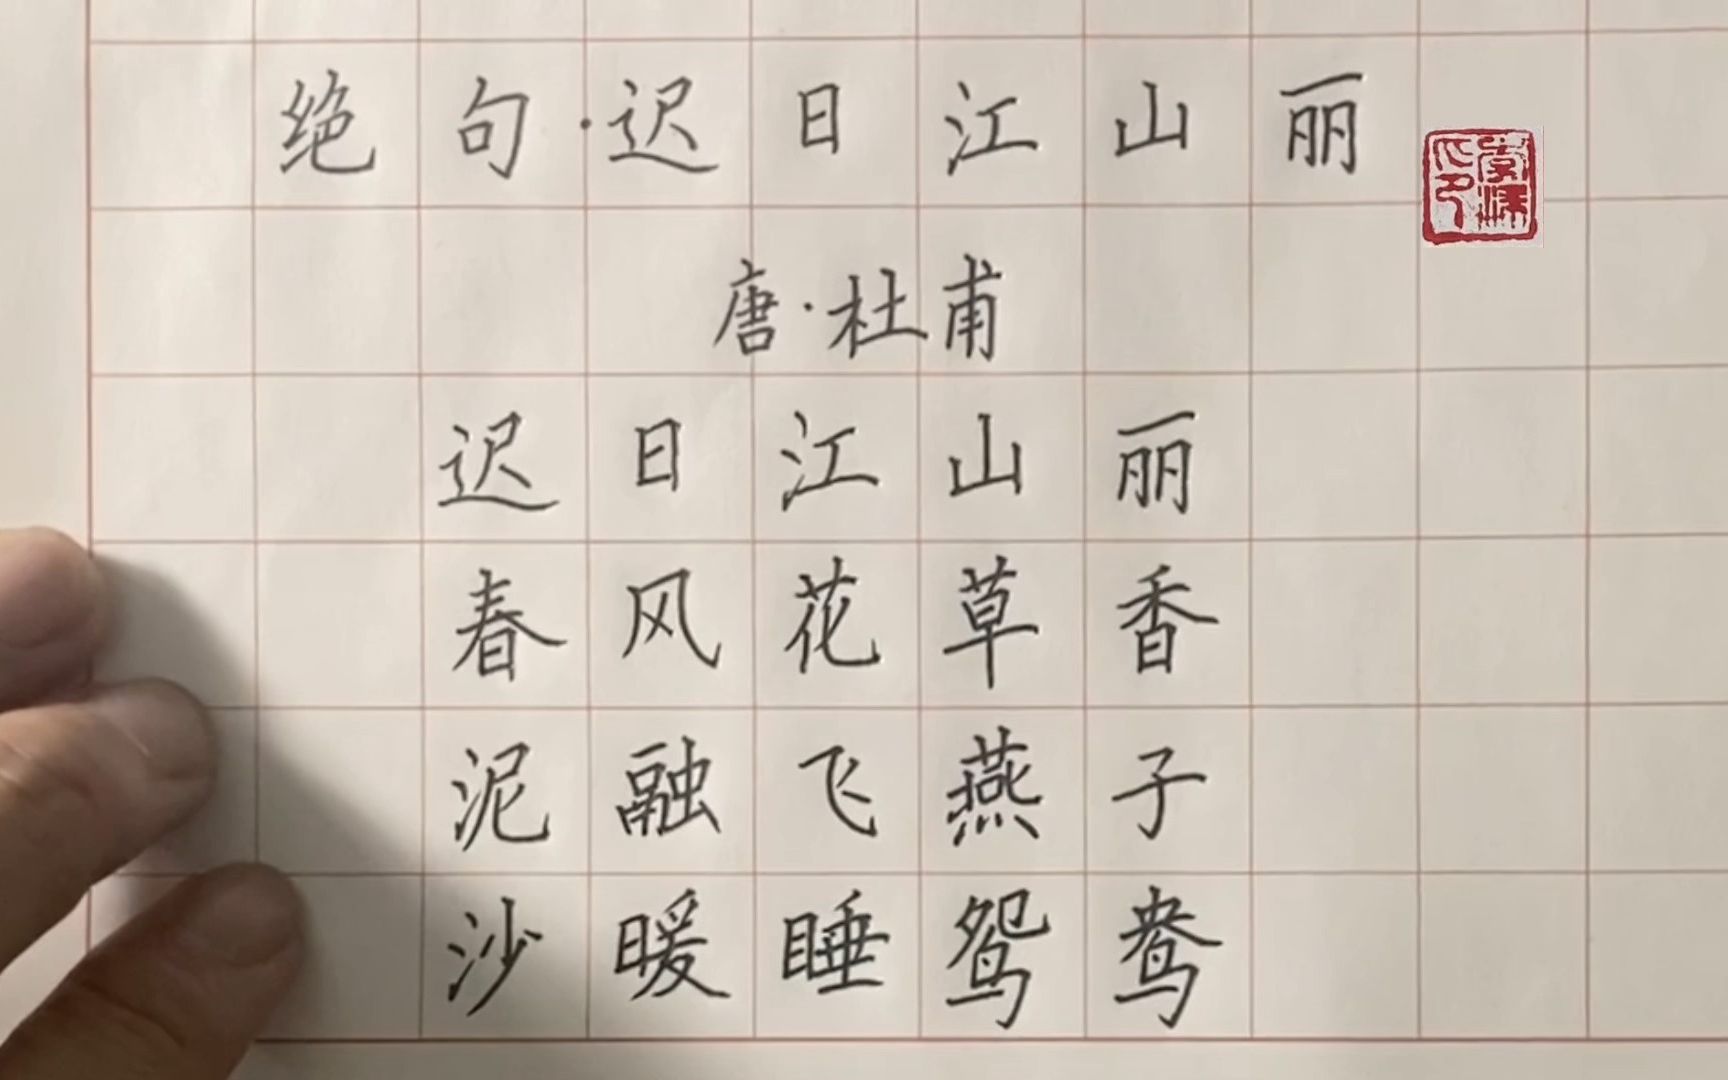 绝句·迟日江山丽
唐·杜甫
迟日江山丽
春风花草香
泥融飞燕子
沙暖睡鸳鸯